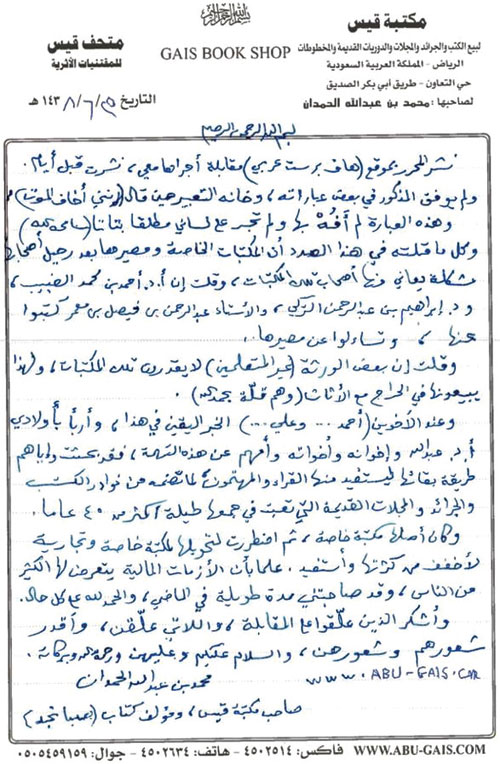 بسم الله الرحمن الرحيم
مكتبة قيس
لبيع الكتب والجرائد والمجلات والدوريات القديمة والمخطوطات
الرياض - المملكة العربية السعودية
حي التعاون - طريق أبي بكر الصديق
لصاحبها: محمد بن عبدالله الحمدان
GAIS BOOK SHOP
متحف قيس
للمقتنيات الأثرية
التاريخ ٢٥/٦/١٤٣٨ هـ
بسم الله الرحمن الرحيم
نشر المحرر بموقع (هاف بوست عربي) مقابلة أجراها معي، نشرت قبل أيام.
ولم يوفق المذكور في بعض عباراته، وخانه التعبير حين قال (إنني أخاف الموت)
وهذه العبارة لم أفُهْ بها ولم تجر على لساني مطلقا بتاتا (سامحه الله)
وكل ما قلته في هذا الصدد أن المكتبات الخاصة ومصيرها بعد رحيل أصحابها
مشكلة يعاني منها أصحاب تلك المكتبات، وقلت إن أ.د. أحمد بن محمد الضبيب،
ود. إبراهيم بن عبدالرحمن التركي، والأستاذ عبدالرحمن بن فيصل بن معمر كتبوا
عنها، وتساءلوا عن مصيرها..
وقلت إن بعض الورثة (غير المتعلمين) لا يقدرون تلك المكتبات، ولهذا
يبيعونها في الحراج مع الأثاث (وهم قلّة بحمد الله)
وعند الأخوين (أحمد ... وعلي ...) الخبر اليقين في هذا، وأربأ بأولادي
أ. د. عبدالله وإخوانه وأخواته وأمهم عن هذه التهمة، فقد بحثت وإياهم
طريقة بقائها ليستفيد منها القراء والمهتمون، لما تضمه من نوادر الكتب
والجرائد والمجلات القديمة التي تعبت في جمعها طيلة أكثر من ٤٠ عاما.
وكان أصلها مكتبة خاصة، ثم اضطررت لتحويلها لمكتبة خاصة وتجارية
لأخفف من كثرتها وأستفيد. علما بأن الأزمات المالية يتعرض لها الكثير
من الناس، وقد صاحبتني مدة طويلة في الماضي، والحمد لله على كل حال.
وأشكر الذين علّقوا على المقابلة، واللاتي علّقن، وأقدر
شعورهم وشعورهن، والسلام عليكم وعليهن ورحمة الله وبركاته.
محمد بن عبدالله الحمدان
WWW.ABU-GAIS.COM
صاحب مكتبة قيس، ومؤلف كتاب (صبا نجد)
WWW.ABU-GAIS.COM فاكس: ٤٥٠٢٥١٤ - هاتف: ٤٥٠٢٦٣٤ - جوال: ٠٥٠٥٤٥٩١٥٩